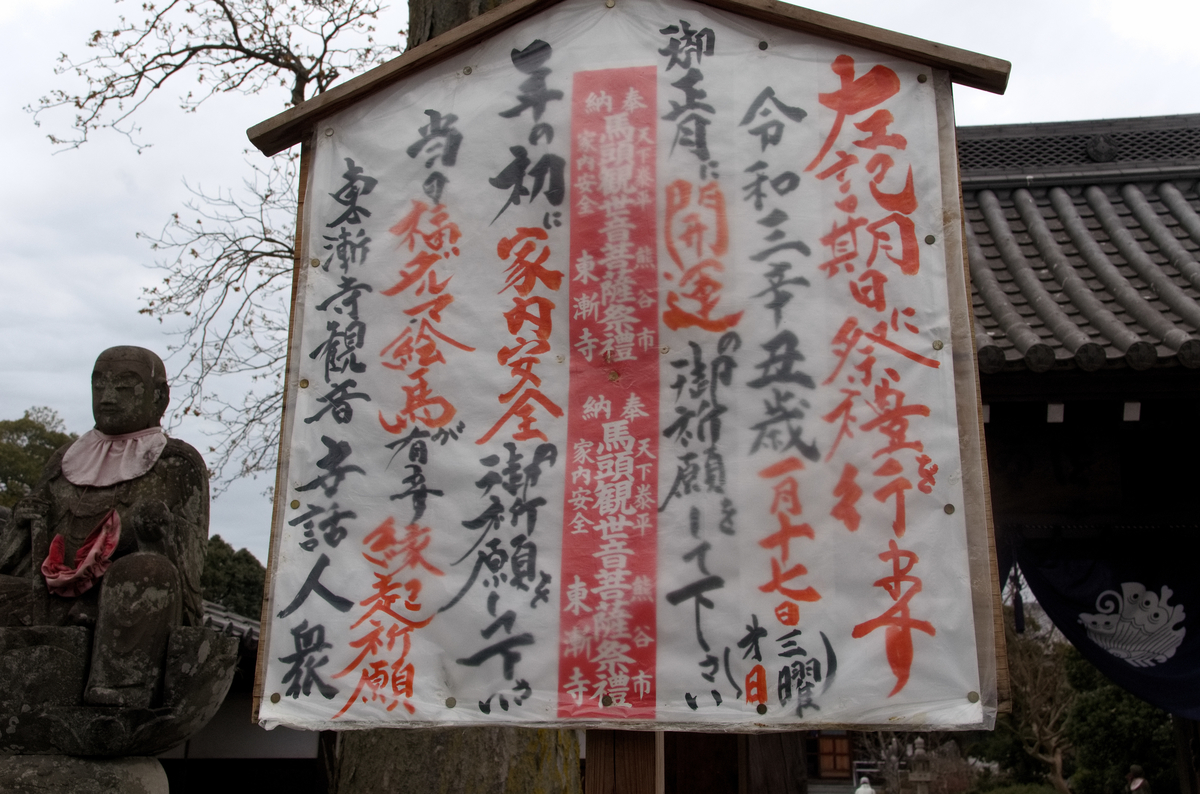 左記期日に祭礼を行います
令和三辛丑歳一月十七日(第三日曜)
御正月に開運の御祈願をして下さい
奉納
天下泰平
熊谷市
馬頭観世音菩薩祭禮
家内安全
東漸寺
奉納
天下泰平
熊谷市
馬頭観世音菩薩祭禮
家内安全
東漸寺
年の初に家内安全の御祈願をして下さい
当の福ダルマ絵馬が有
縁起祈願
東漸寺観音
世話人衆